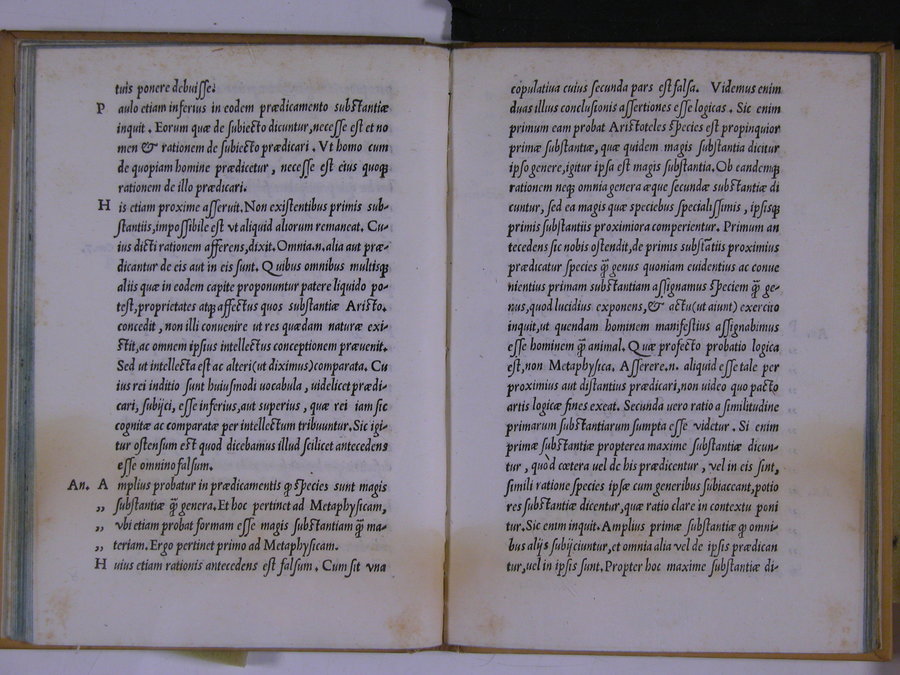 tuis ponere debuisse.
P aulo etiam inferius in eodem prædicamento substantiæ
inquit. Eorum quæ de subiecto dicuntur, necesse est et no
men & rationem de subiecto prædicari. Vt homo cum
de quopiam homine prædicetur, necesse est eius quoqꝫ
rationem de illo prædicari.
H is etiam proxime asseruit. Non existentibus primis sub-
stantiis, impossibile est vt aliquid aliorum remaneat. Cu-
ius dicti rationem afferens, dixit. Omnia.n.alia aut præ-
dicantur de eis aut in eis sunt. Quibus omnibus multisqꝫ
aliis quæ in eodem capite proponuntur patere liquido po-
test, proprietates atqꝫ affectus quos substantiæ Aristo.
concedit, non illi conuenire ut res quædam naturæ exi-
stit, ac omnem ipsius intellectus conceptionem præuenit.
Sed ut intellecta est ac alteri (ut diximus) comparata. Cu
ius rei inditio sunt huiusmodi uocabula, uidelicet prædi-
cari, subijci, esse inferius, aut superius, quæ rei iam sic
cognitæ ac comparatæ per intellectum tribuuntur. Sic igi-
tur ostensum est quod dicebamus illud scilicet antecedens
esse omnino falsum.
An. A mplius probatur in prædicamentis ꝙ species sunt magis
,, substantiæ q̃ genera. Et hoc pertinet ad Metaphysicam,
,, vbi etiam probat formam esse magis substantiam q̃ ma-
,, teriam. Ergo pertinet primo ad Metaphysicam.
H uius etiam rationis antecedens est falsum. Cum sit vna
copulatiua cuius secunda pars est falsa. Videmus enim
duas illius conclusionis assertiones esse logicas. Sic enim
primum eam probat Aristoteles species est propinquior
primæ substantiæ, quæ quidem magis substantia dicitur
ipso genere, igitur ipsa est magis substantia. Ob eandemqꝫ
rationem neqꝫ omnia genera æque secundæ substantiæ di
cuntur, sed ea magis quæ speciebus specialissimis, ipsisqꝫ
primis substantiis proximiora comperientur. Primum an
tecedens sic nobis ostendit, de primis substātiis proximius
prædicatur species q̃ genus quoniam euidentius ac conue
nientius primam substantiam assignamus speciem q̃ ge-
nus, quod lucidius exponens, & actu (ut aiunt) exercito
inquit, ut quendam hominem manifestius assignabimus
esse hominem q̃ animal. Quæ profecto probatio logica
est, non Metaphysica. Asserere.n. aliquid esse tale per
proximius aut distantius prædicari, non uideo quo pacto
artis logicæ fines exeat. Secunda uero ratio a similitudine
primarum substantiarum sumpta esse videtur. Si enim
primæ substantiæ propterea maxime substantiæ dicun-
tur, quòd cætera uel de his prædicentur, vel in eis sint,
simili ratione species ipsæ cum generibus subiaceant, potio
res substantiæ dicentur, quæ ratio clare in contextu poni
tur. Sic enim inquit. Amplius primæ substantiæ ꝙ omni-
bus alijs subijciuntur, et omnia alia vel de ipsis prædican
tur, uel in ipsis sunt. Propter hoc maxime substantiæ di-